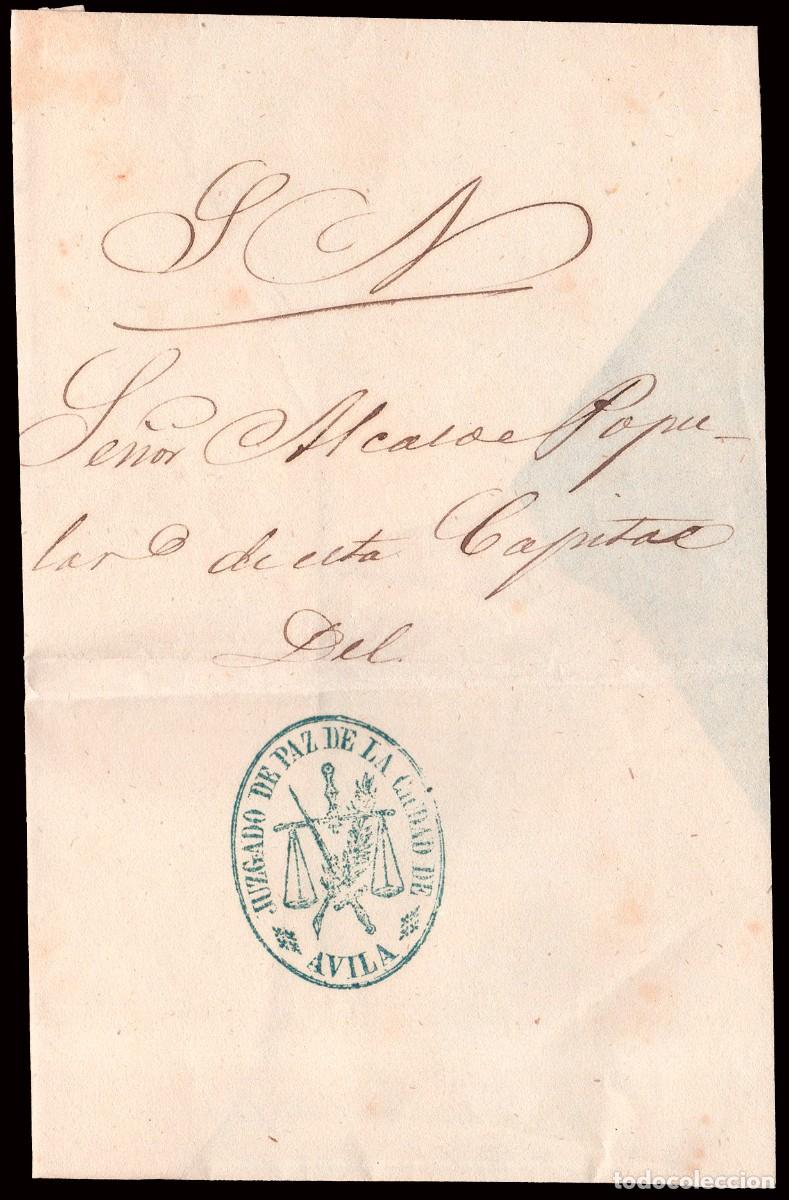 S N
Señor Alcalde Popu-
lar de esta Capital
Del
JUZGADO DE PAZ DE LA CIUDAD DE
AVILA
todocoleccion